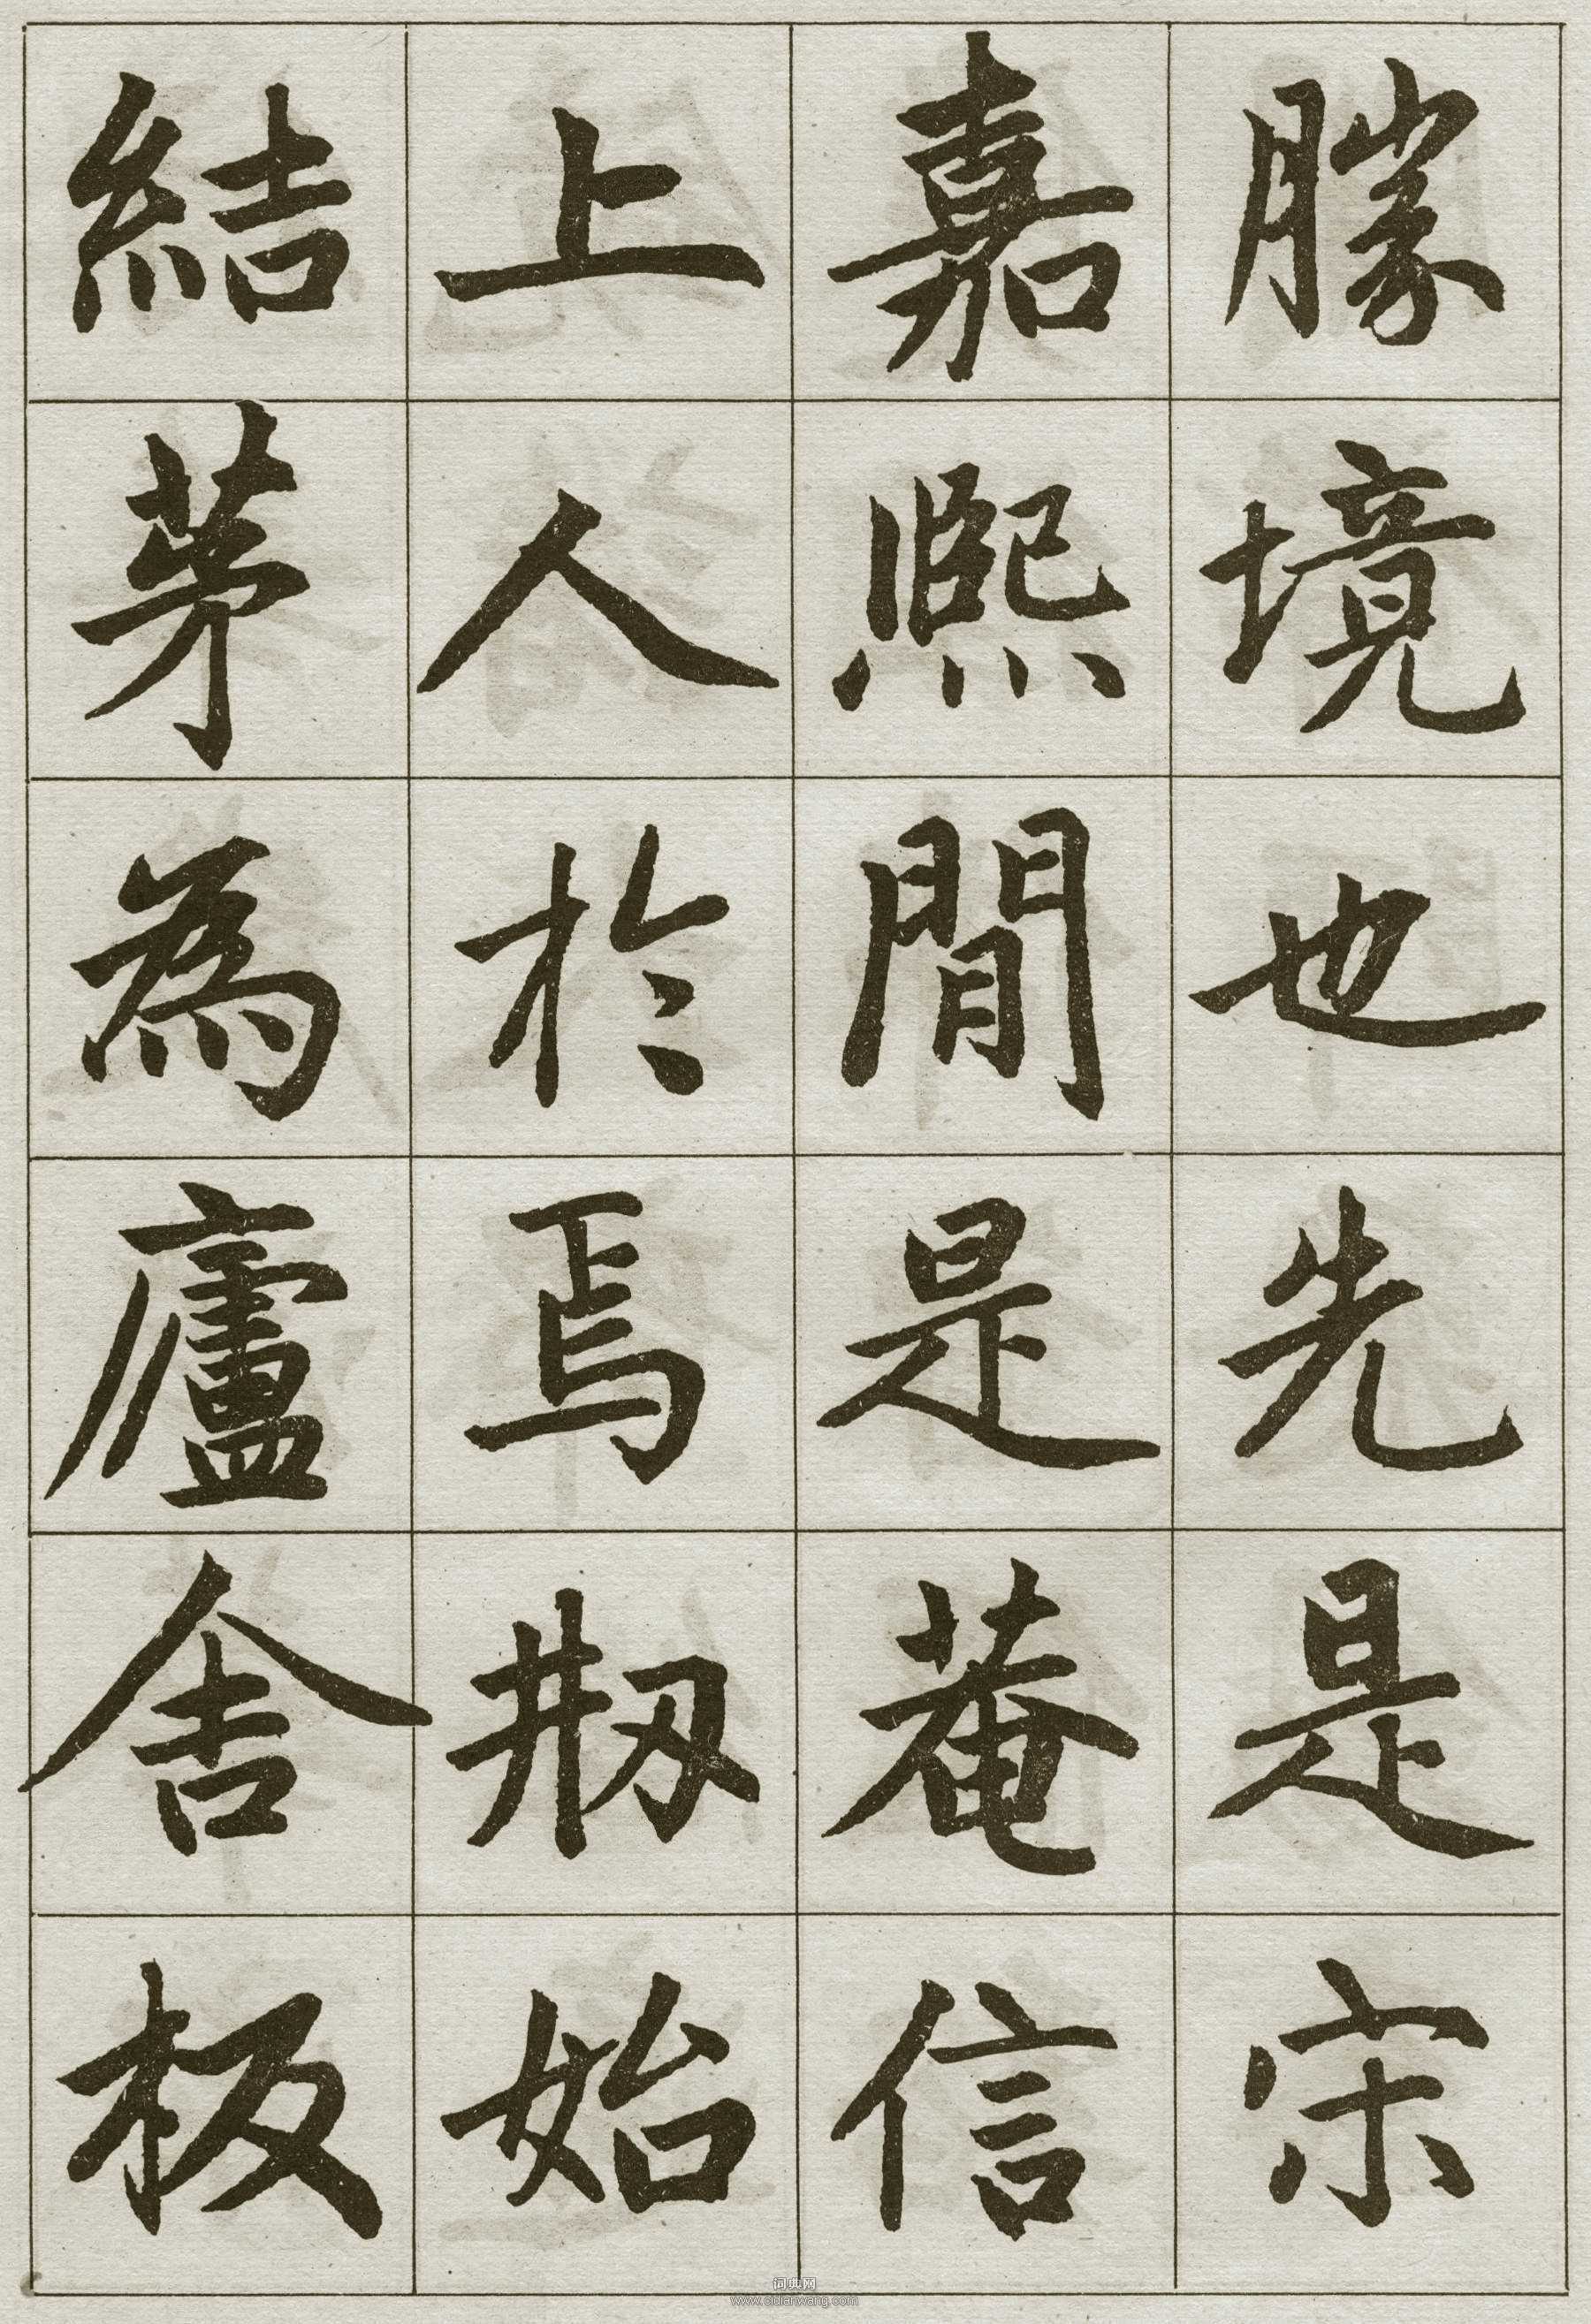 勝境也先是宋
嘉熙間是菴信
上人於焉剏始
結茅為廬舍板
词典网
www.cidianwang.com